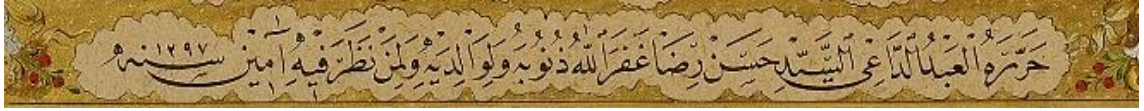 حَرَّرَهُ الْعَبْدُ الدَّاعِي السَّيِّدْ حَسَنْ رِضَا غَفَرَ اللّٰهُ ذُنُوبَهُ وَلِوَالِدَيْهِ وَلِمَنْ نَظَرَ فِيهِ آمِينْ سنه ١٢٩٧